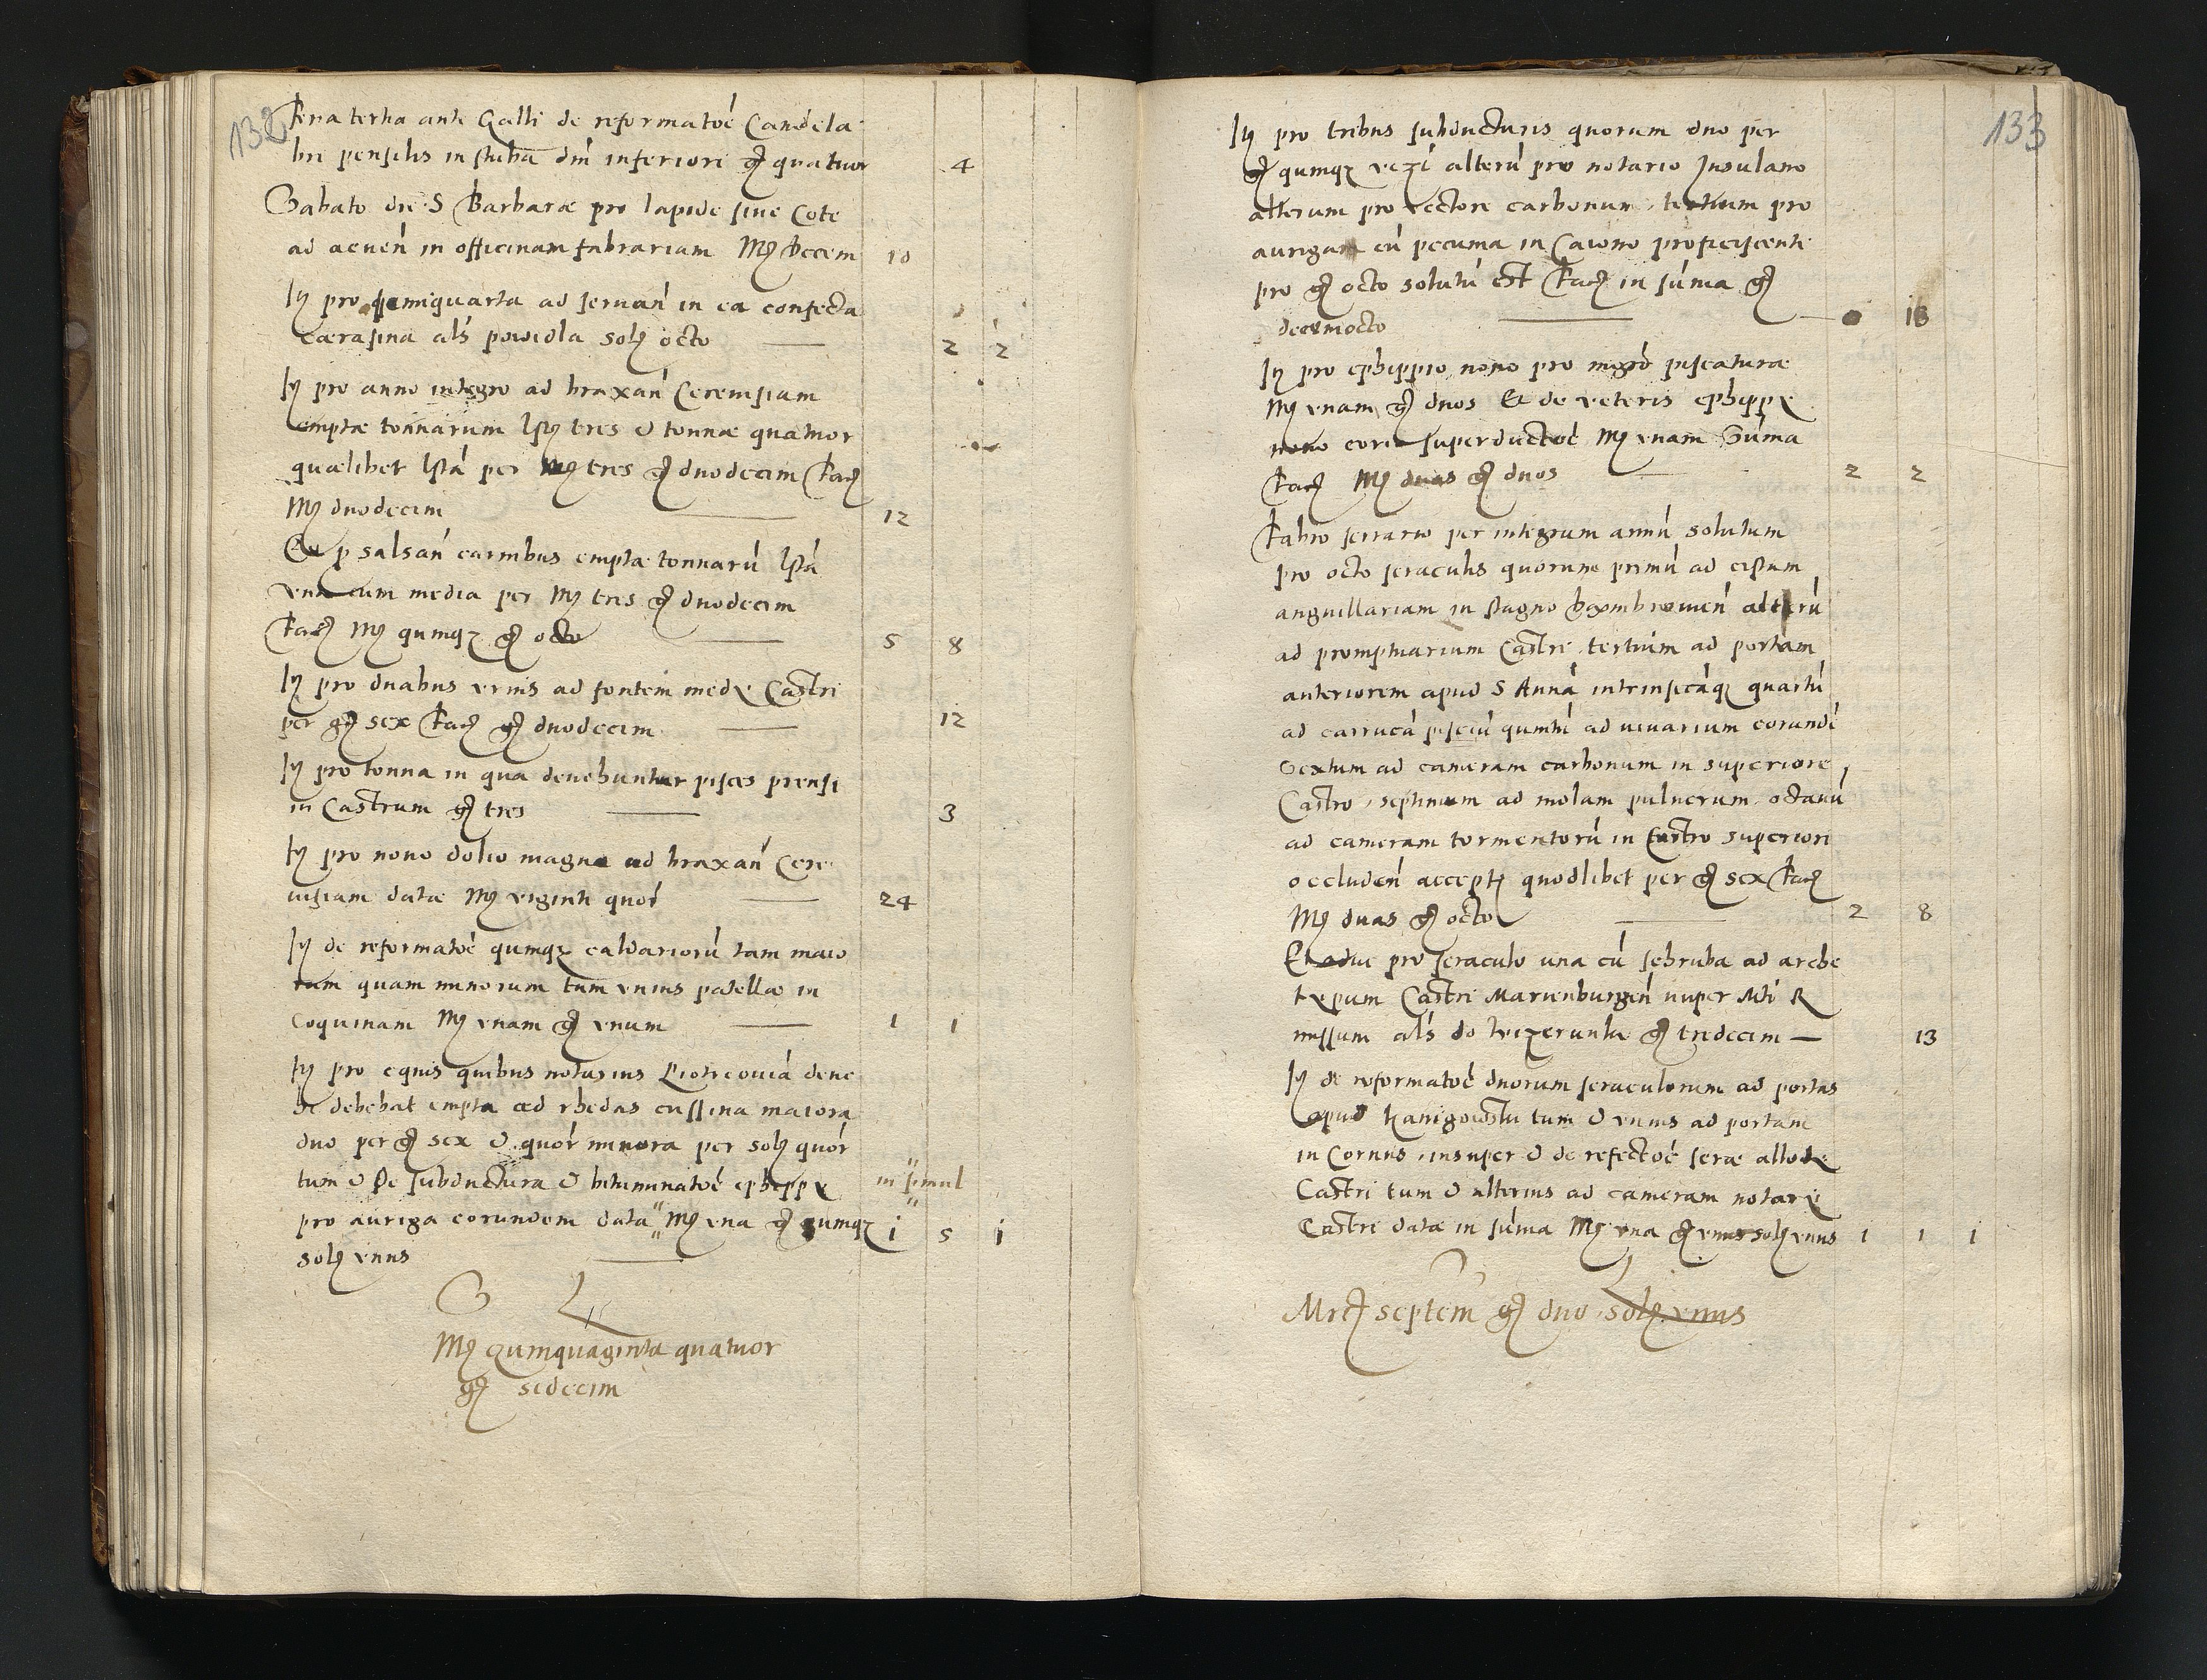 132
Feria tertia ante Galli de reformatoe Candela
bri pensilis in stuba dni inferiori gr quatuor 4
Sabato die S Barbarae pro lapide sive Cote
ad acuen in officinam fabrariam Mr decem 10
It pro semiquarta ad servan in ea confecta
caerasina als powidla sol octo 2 2
It pro anno integro ad braxan Cerevisiam
emptae tonnarum lstae tres & tonnae quatuor
quaelibet lsta per Mr tres gr duodecim fac
Mr duodecim 12
Eu p salsan carnibus empta tonnaru lsta
una cum media per Mr tres gr duodecim
fac Mr quinq3 gr octo 5 8
It pro duabus urnis ad fontem med Castri
per gr sex fac gr duodecim 12
It pro tonna in qua devehuntur pisces prensi
in Castrum gr tres 3
It pro novo dolio magno ad braxan Cere
visiam datae Mr viginti quor 24
It de reformatoe quinq3 caldarioru tam maio
rum quam minorum tum unius patellae in
coquinam Mr unam gr unum 1 1
It pro equis quibus notarius Piotrcovia deve
hi debebat empta ad rhedas cussina maiora
duo per gr sex & quor minora per sol quor
tum & De subductura & bituminatoe ephippy in simul
pro auriga eorundem data Mr una gr quinq3 1 5 1
sol unus
Mr quinquaginta quatuor
gr sedecim
133
It pro tribus subducturis quorum duo per
gr quinq3 alteru pro notario Insulano
alterum pro vectore carbonum, tertium pro
auriga cu pecunia in Caiono proficiscente
pro gr octo solutu est fac in suma gr
decemocto 18
It pro ephippio novo pro mgro piscaturae
Mr unam gr duos Et de veteris ephippy
novo corio superductoe Mr unam Suma
fac Mr duas gr duos 2 2
Fabro serrario per integrum annu solutum
pro octo seraculis quorum primu ad cistam
anguillariam in stagno alteru
ad promptuarium Castri tertium ad portam
anteriorem apud S Anna intrinsecaq3 quartu
ad carruca pisciu quintu ad vivarium eorunde
Sextum ad cameram carbonum in superiore
Castro, septimum ad molam pulverum, octavu
ad cameram tormentoru in Castro superiori
occluden accept quodlibet per gr sex fac
Mr duas gr octo 2 8
Et adue pro seraculo una cu schruba ad arche
typum Castri Marienburgen nuper Mti R
missum als do wizerunku gr tredecim 13
It de reformatoe duorum seraculorum ad portas
apud tum & unius ad portam
in Cornus, insuper & de refectoe serae allod
Castri tum & alterius ad cameram notary
Castri datae in suma Mr una gr unus sol unus 1 1 1
Mrc septem gr duo sol unus